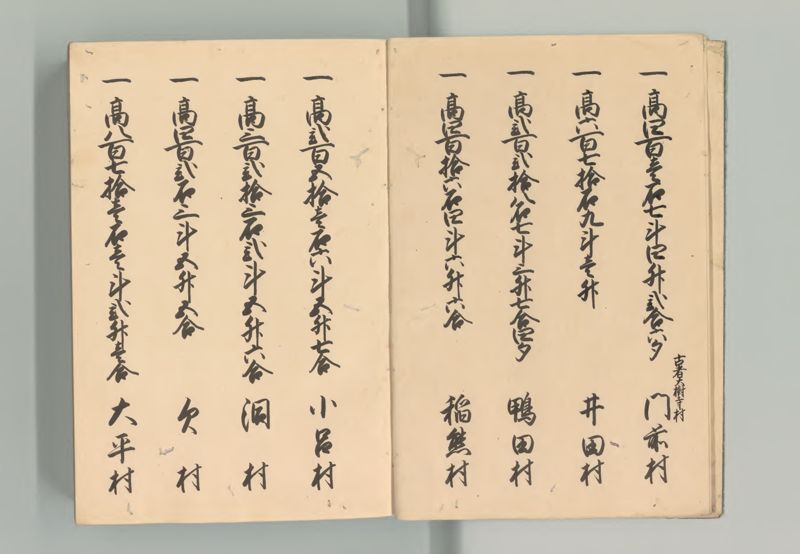 一高四百壱石七斗四升弐合六夕 門前村
古者大樹寺村
一高六百七拾石九斗壱升 井田村
一高弐百弐拾八石七斗三升七合四夕 鴨田村
一高四百拾六石四斗六升六合 稲熊村
一高弐百五拾壱石六斗五升七合 小呂村
一高三百弐拾三石弐斗五升六合 洞村
一高四百弐石三斗五升五合 欠村
一高八百七拾壱石壱斗弐升壱合 大平村